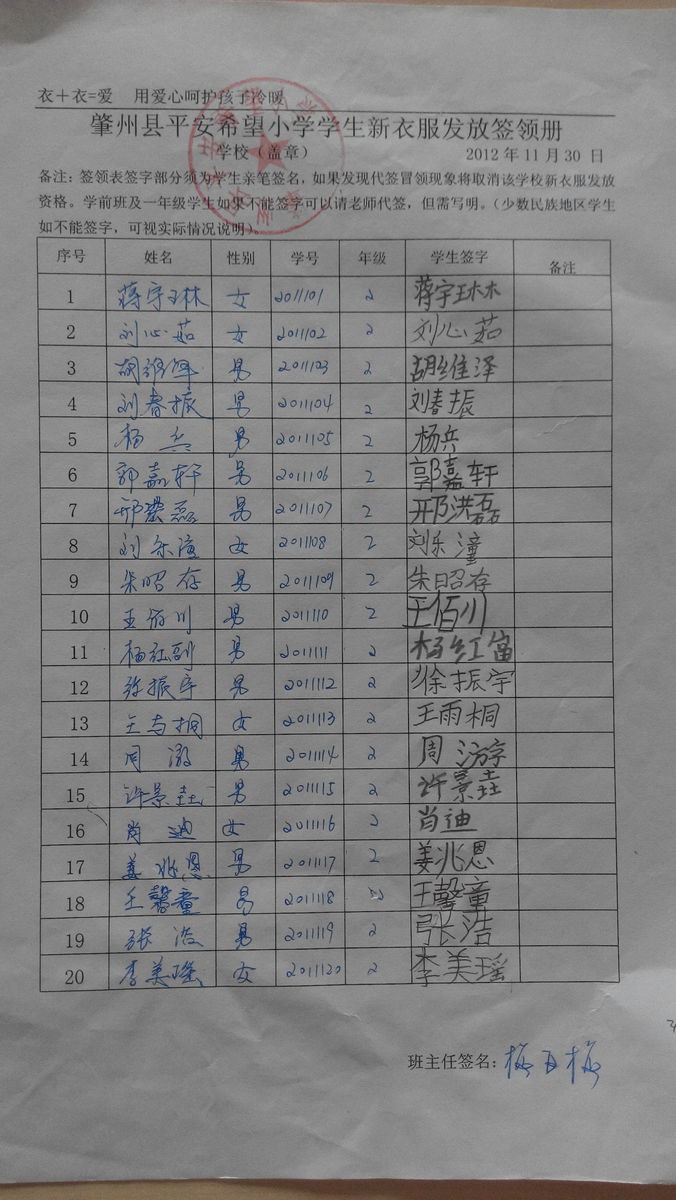 衣＋衣=爱 用爱心呵护孩子冷暖
肇州县平安希望小学学生新衣服发放签领册
学校（盖章） 2012 年 11 月 30 日
备注：签领表签字部分须为学生亲笔签名，如果发现代签冒领现象将取消该学校新衣服发放
资格。学前班及一年级学生如果不能签字可以请老师代签，但需写明。（少数民族地区学生
如不能签字，可视实际情况说明）。
序号 姓名 性别 学号 年级 学生签字 备注
1 蒋宇琳 女 2011101 2 蒋宇琳
2 刘心茹 女 2011102 2 刘心茹
3 胡维泽 男 2011103 2 胡维泽
4 刘春振 男 2011104 2 刘春振
5 杨兵 男 2011105 2 杨兵
6 郭嘉轩 男 2011106 2 郭嘉轩
7 邢洪磊 男 2011107 2 邢洪磊
8 刘乐潼 女 2011108 2 刘乐潼
9 朱昭存 男 2011109 2 朱昭存
10 王佰川 男 2011110 2 王佰川
11 杨红富 男 2011111 2 杨红富
12 徐振宇 男 2011112 2 徐振宇
13 王雨桐 女 2011113 2 王雨桐
14 周 男 2011114 2 周
15 许景垚 男 2011115 2 许景垚
16 肖迪 女 2011116 2 肖迪
17 姜兆恩 男 2011117 2 姜兆恩
18 王馨童 男 2011118 2 王馨童
19 张浩 男 2011119 2 张浩
20 李美瑶 女 2011120 2 李美瑶
班主任签名：